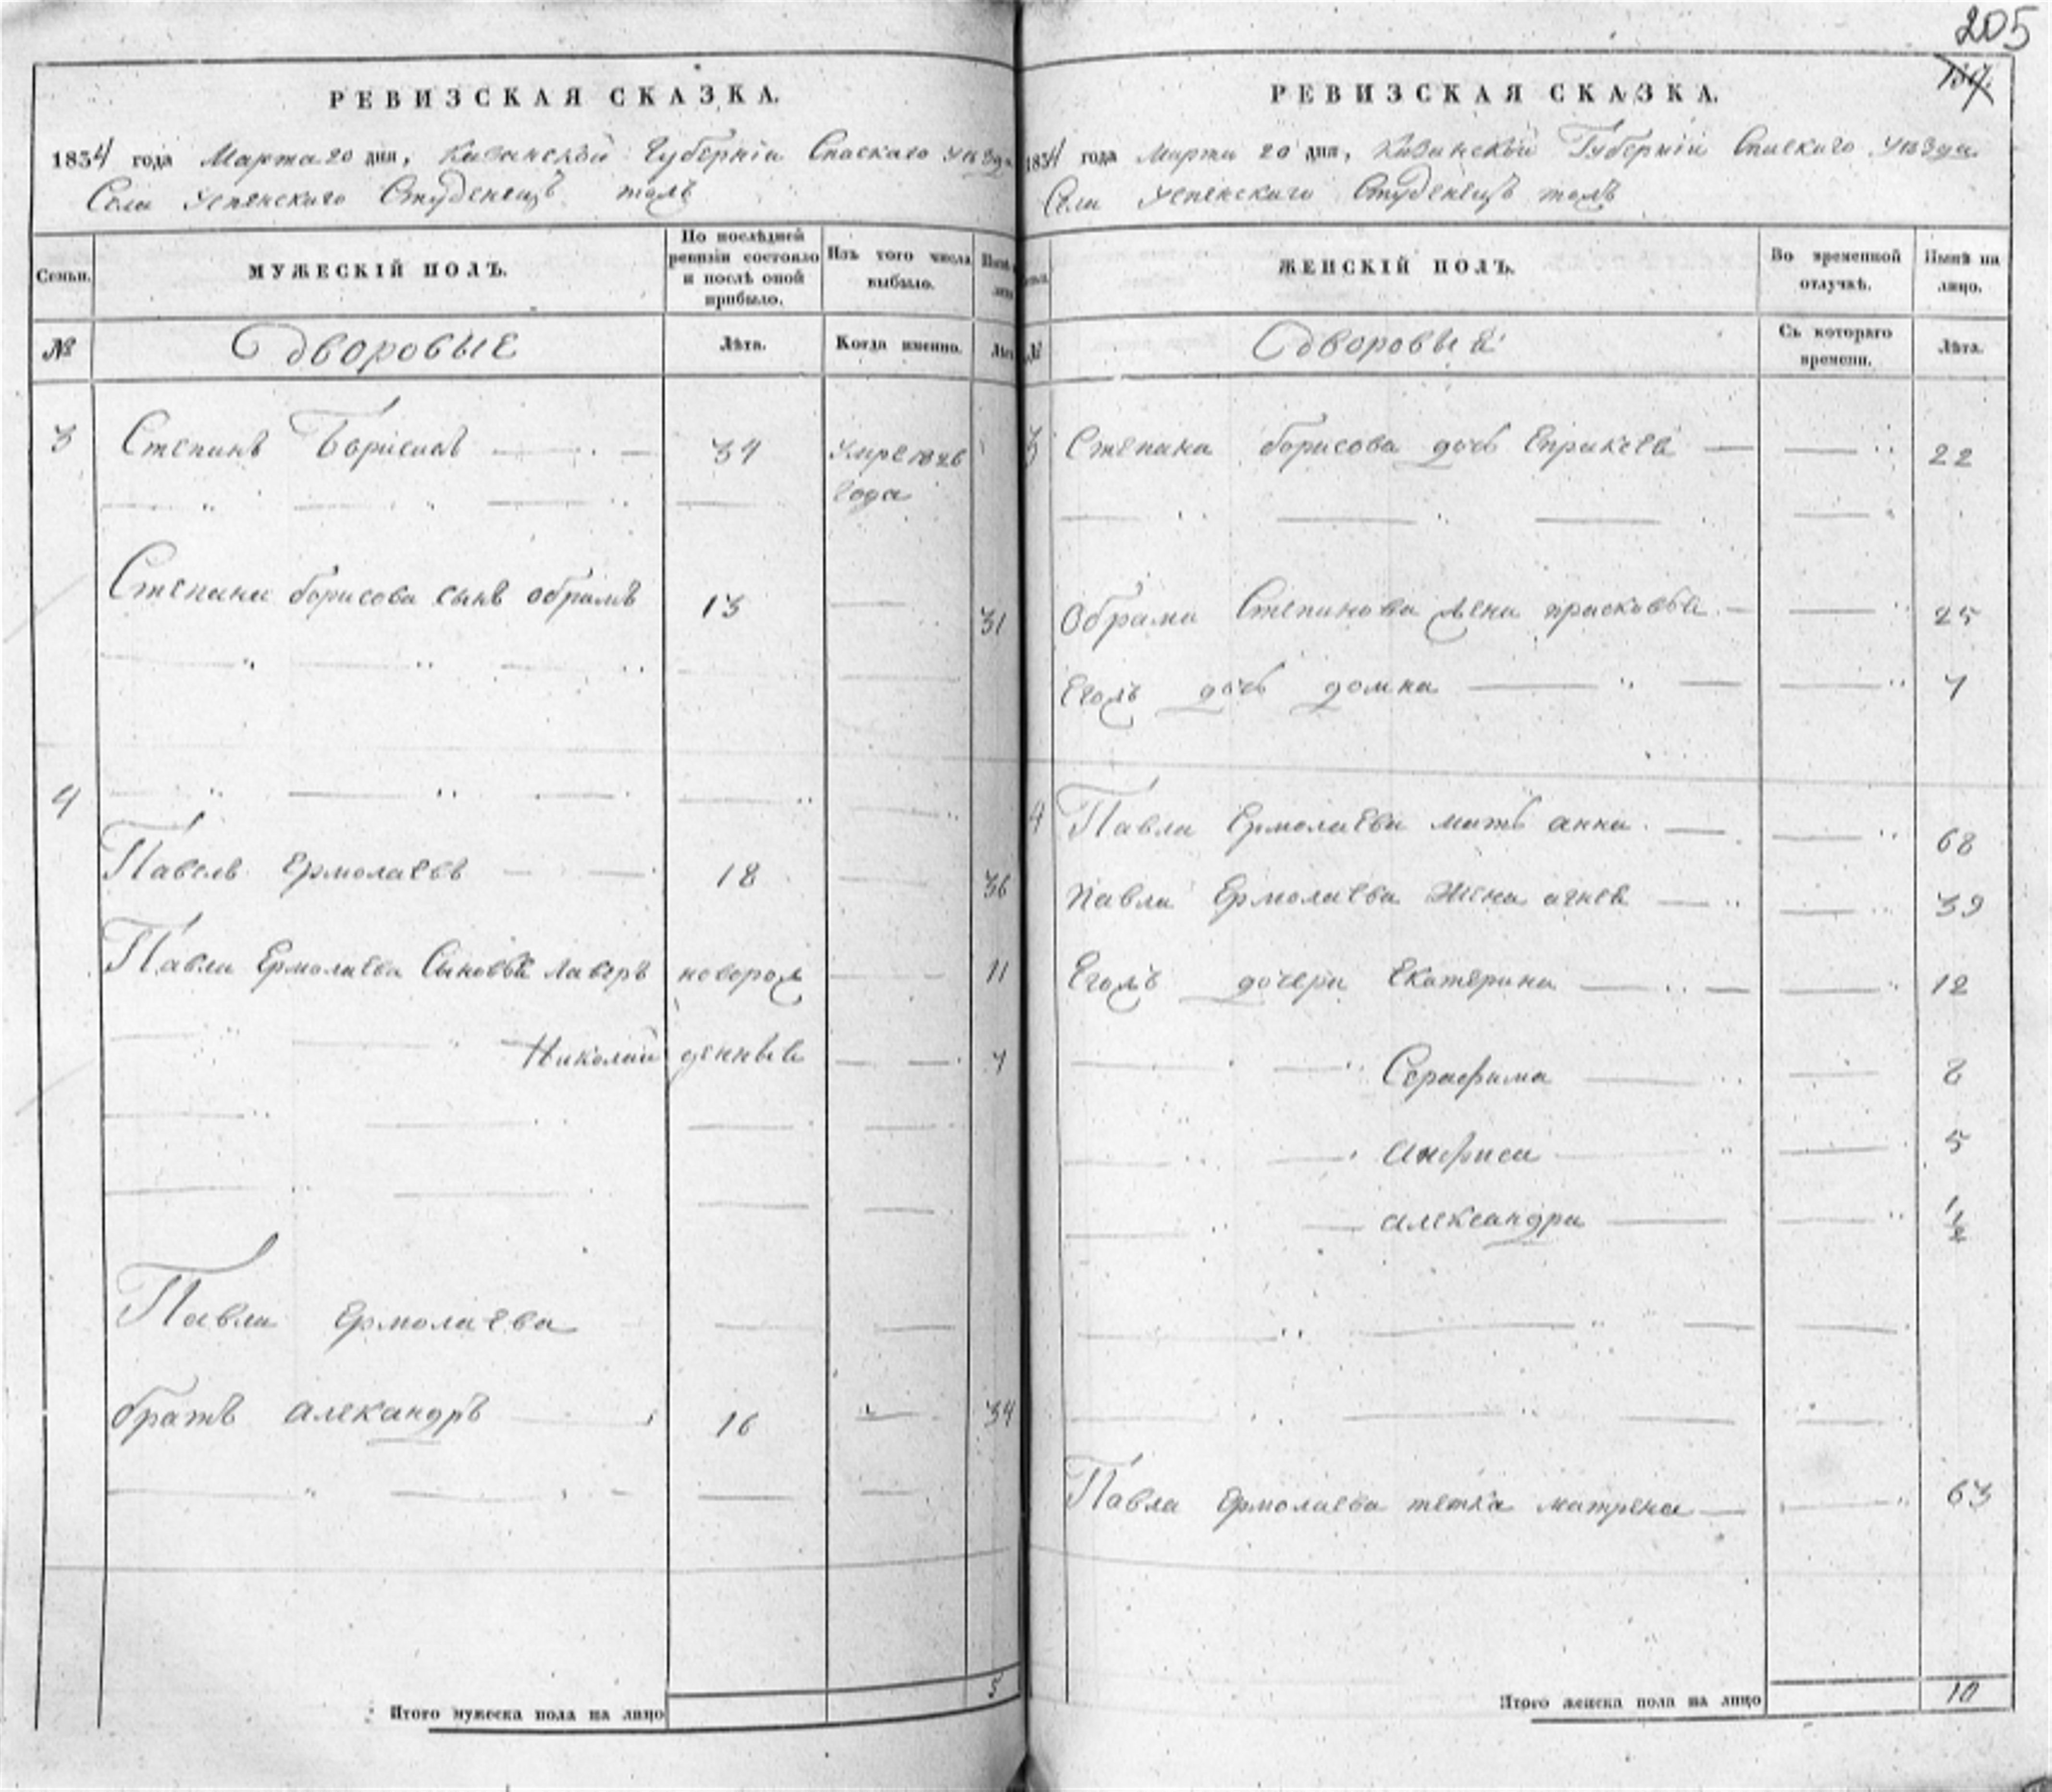 205
РЕВИЗСКАЯ СКАЗКА.
1834 года Марта 20 дня, Казанской Губерніи Спаскаго уезда
Села Успенскаго Студенецъ тожъ
Семьи.
МУЖЕСКІЙ ПОЛЪ.
По послѣдней ревизіи состояло и послѣ оной прибыло.
Изъ того числа выбыло.
№
Дворовые
Лѣта.
Когда именно.
3 Степанъ Борисовъ 34 умре 1826
года
Степана борисова сынъ обрамъ 13 31
4
Павелъ ермолаевъ 18 36
Павла Ермолаева Сыновья лаверъ новорож 11
Николай денныя 7
Павла ермолаева
братъ александръ 16 34
Итого мужеска пола на лицо 5
РЕВИЗСКАЯ СКАЗКА.
1834 года Марта 20 дня, Казанской Губерніи Спаскаго уезда
Села Успенскаго Студенецъ тожъ
ЖЕНСКІЙ ПОЛЪ.
Во временной отлучкѣ.
Нынѣ на лицо.
№
Дворовыя
Съ котораго времени.
Лѣта.
3 Степана борисова дочь Епраксея 22
Обрама Степанова жена прасковья 25
Егожъ дочь домна 7
4 Павла Ермолаева мать анна 68
Павла Ермолаева Жена агнея 39
Егожъ дочери Екатерина 12
Серафима 8
анфиса 5
александра 1/2
Павла Ермолаева тетка матрена 63
Итого женска пола на лицо 10